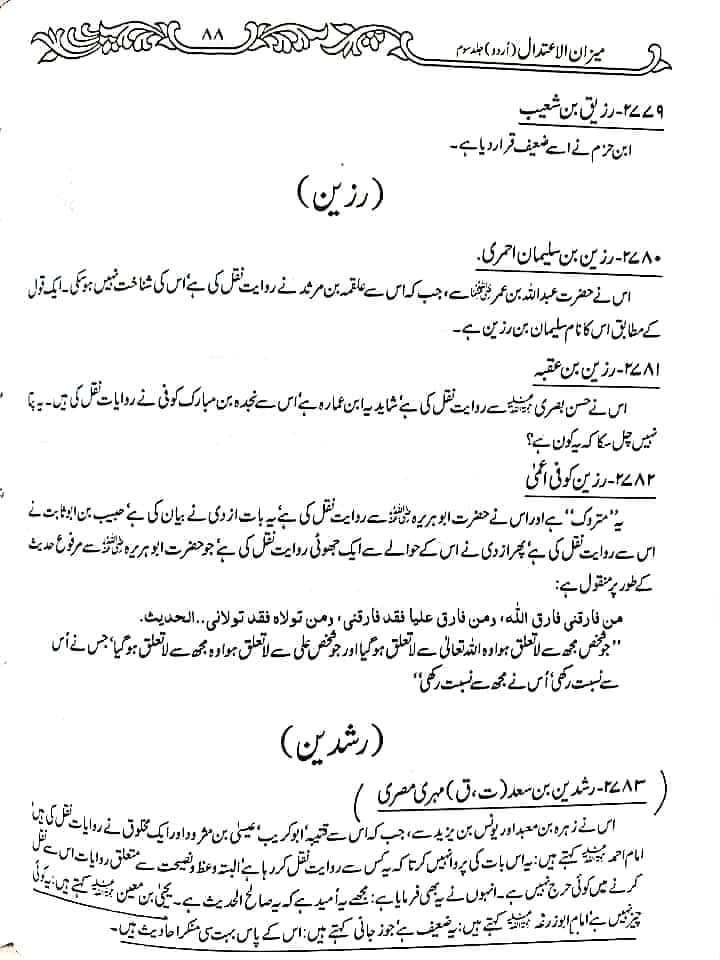 میزان الاعتدال (اُردو) جلد سوم
۸۸
۲۷۷۹-رزیق بن شعیب
ابن حزم نے اسے ضعیف قرار دیا ہے۔
(رزین)
۲۷۸۰-رزین بن سلیمان احمری.
اس نے حضرت عبداللہ بن عمر رضی اللہ عنہما سے، جب کہ اس سے علقمہ بن مرثد نے روایت نقل کی ہے' اس کی شناخت نہیں ہو سکی۔ ایک قول
کے مطابق اس کا نام سلیمان بن رزین ہے۔
۲۷۸۱-رزین بن عقبہ
اس نے حسن بصری رحمۃ اللہ علیہ سے روایت نقل کی ہے' شاید یہ ابن عمارہ ہے' اس سے نجدہ بن مبارک کوفی نے روایات نقل کی ہیں۔ یہ پتا
نہیں چل سکا کہ یہ کون ہے؟
۲۷۸۲-رزین کوفی اعمیٰ
یہ "متروک" ہے اور اس نے حضرت ابو ہریرہ رضی اللہ عنہ سے روایت نقل کی ہے' یہ بات ازدی نے بیان کی ہے' حبیب بن ابو ثابت نے
اس سے روایت نقل کی ہے' پھر ازدی نے اس کے حوالے سے ایک جھوٹی روایت نقل کی ہے' جو حضرت ابو ہریرہ رضی اللہ عنہ سے مرفوع حدیث
کے طور پر منقول ہے:
من فارقنی فارق الله، ومن فارق علیا فقد فارقنی، ومن تولاه فقد تولانی..الحدیث.
"جو شخص مجھ سے لاتعلق ہوا وہ اللہ تعالیٰ سے لاتعلق ہو گیا اور جو شخص علی سے لاتعلق ہوا وہ مجھ سے لاتعلق ہو گیا' جس نے اُس
سے نسبت رکھی' اُس نے مجھ سے نسبت رکھی"
(رشدین)
۲۷۸۳-رشدین بن سعد (ت، ق) مہری مصری
اس نے زہرہ بن معبد اور یونس بن یزید سے، جب کہ اس سے قتیبہ' ابو کریب' عیسیٰ بن مثرود اور ایک مخلوق نے روایات نقل کی ہیں'
امام احمد رحمۃ اللہ علیہ کہتے ہیں: یہ اس بات کی پروا نہیں کرتا کہ یہ کس سے روایت نقل کر رہا ہے' البتہ وعظ و نصیحت سے متعلق روایات اس سے نقل
کرنے میں کوئی حرج نہیں ہے۔ انہوں نے یہ بھی فرمایا ہے: مجھے یہ اُمید ہے کہ یہ صالح الحدیث ہے۔ یحییٰ بن معین رحمۃ اللہ علیہ کہتے ہیں: یہ کوئی
چیز نہیں ہے' امام ابوزرعہ رحمۃ اللہ علیہ کہتے ہیں: یہ ضعیف ہے' جوزجانی کہتے ہیں: اس کے پاس بہت سی منکر احادیث ہیں۔